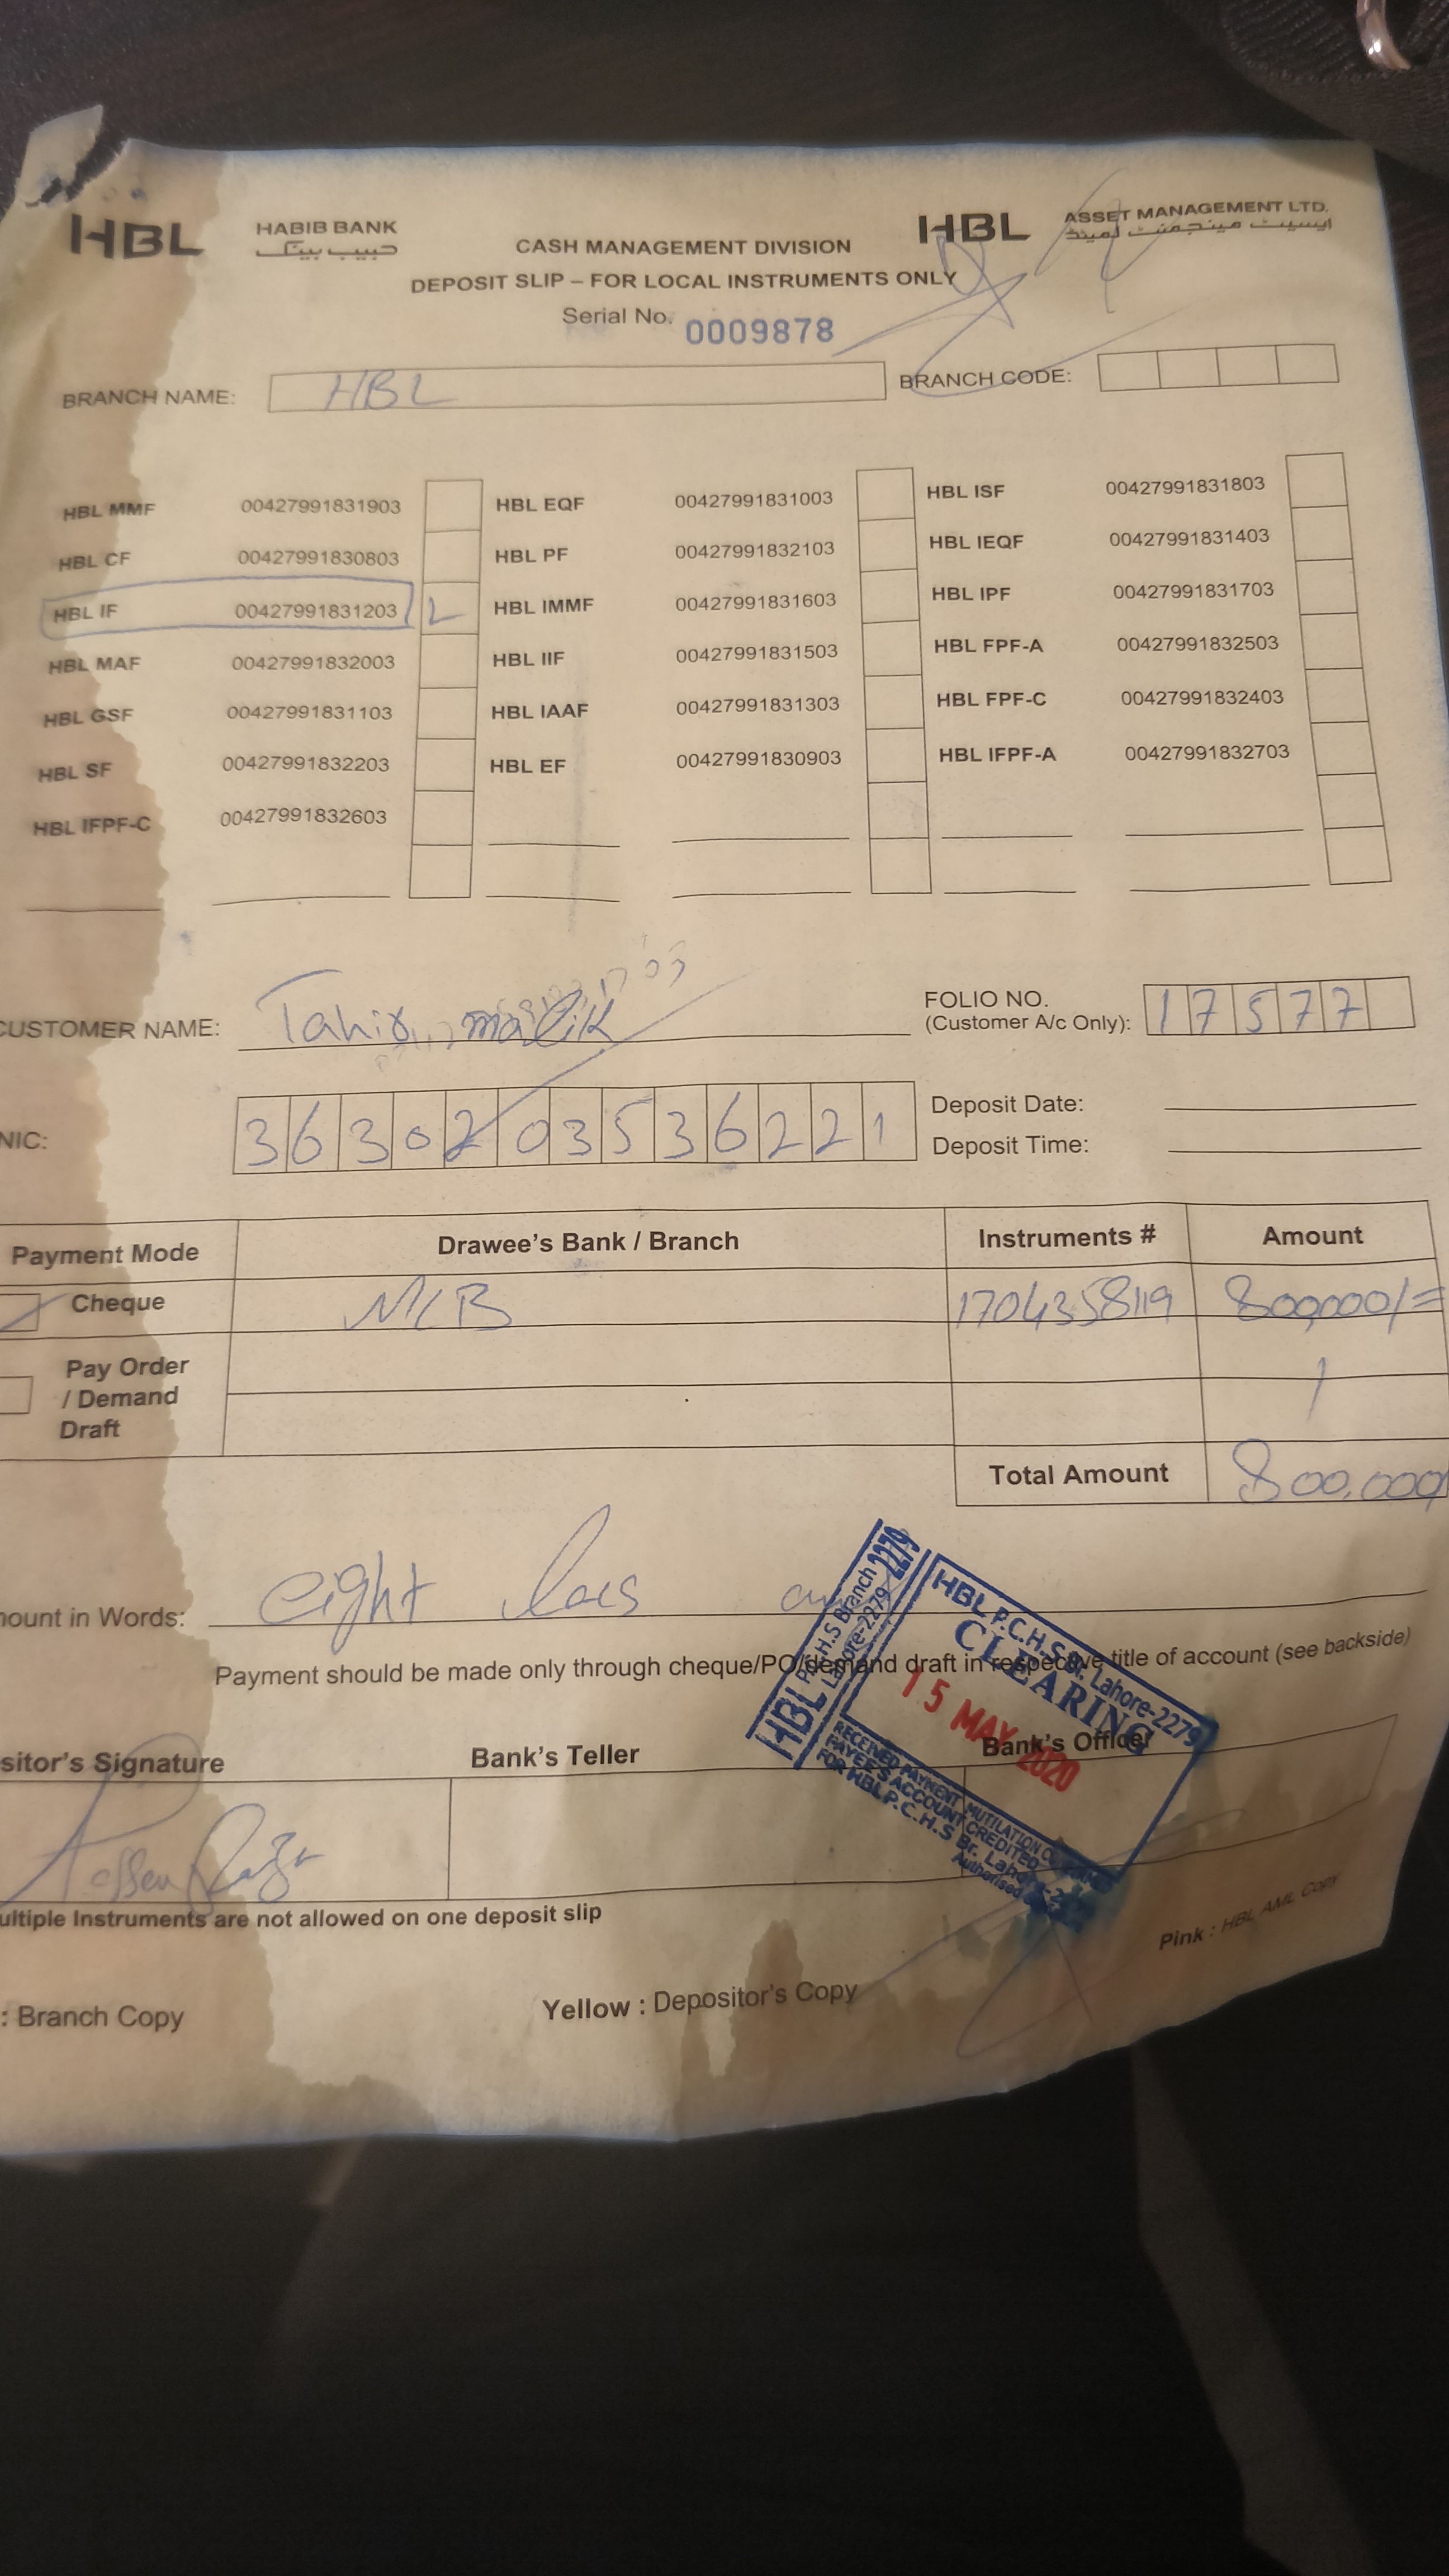 HBL HABIB BANK HBL ASSET MANAGEMENT LTD.
حبیب بینک ایسیٹ مینجمنٹ لمیٹڈ
CASH MANAGEMENT DIVISION
DEPOSIT SLIP – FOR LOCAL INSTRUMENTS ONLY
Serial No. 0009878
BRANCH NAME: HBL BRANCH CODE:
HBL MMF 00427991831903 HBL EQF 00427991831003 HBL ISF 00427991831803
HBL CF 00427991830803 HBL PF 00427991832103 HBL IEQF 00427991831403
HBL IF 00427991831203 HBL IMMF 00427991831603 HBL IPF 00427991831703
HBL MAF 00427991832003 HBL IIF 00427991831503 HBL FPF-A 00427991832503
HBL GSF 00427991831103 HBL IAAF 00427991831303 HBL FPF-C 00427991832403
HBL SF 00427991832203 HBL EF 00427991830903 HBL IFPF-A 00427991832703
HBL IFPF-C 00427991832603
CUSTOMER NAME: Tahir malik FOLIO NO. (Customer A/c Only): 17577
NIC: 3630203536221 Deposit Date:
Deposit Time:
Payment Mode Drawee's Bank / Branch Instruments # Amount
Cheque MCB 1704358119 800,000/=
Pay Order
/ Demand
Draft
Total Amount 800,000
ount in Words: eight lacs
Payment should be made only through cheque/PO/demand draft in respective title of account (see backside)
sitor's Signature Bank's Teller Bank's Officer
HBL P.C.H.S Branch 2279
Lahore-2279
HBL P.C.H.S Br. Lahore-2279
CLEARING
15 MAY 2020
RECEIVED PAYMENT
PAYEE'S ACCOUNT CREDITED
FOR HBL P.C.H.S Br. Lahore-2279
Authorised
ultiple Instruments are not allowed on one deposit slip
: Branch Copy Yellow : Depositor's Copy Pink : HBL AML Copy